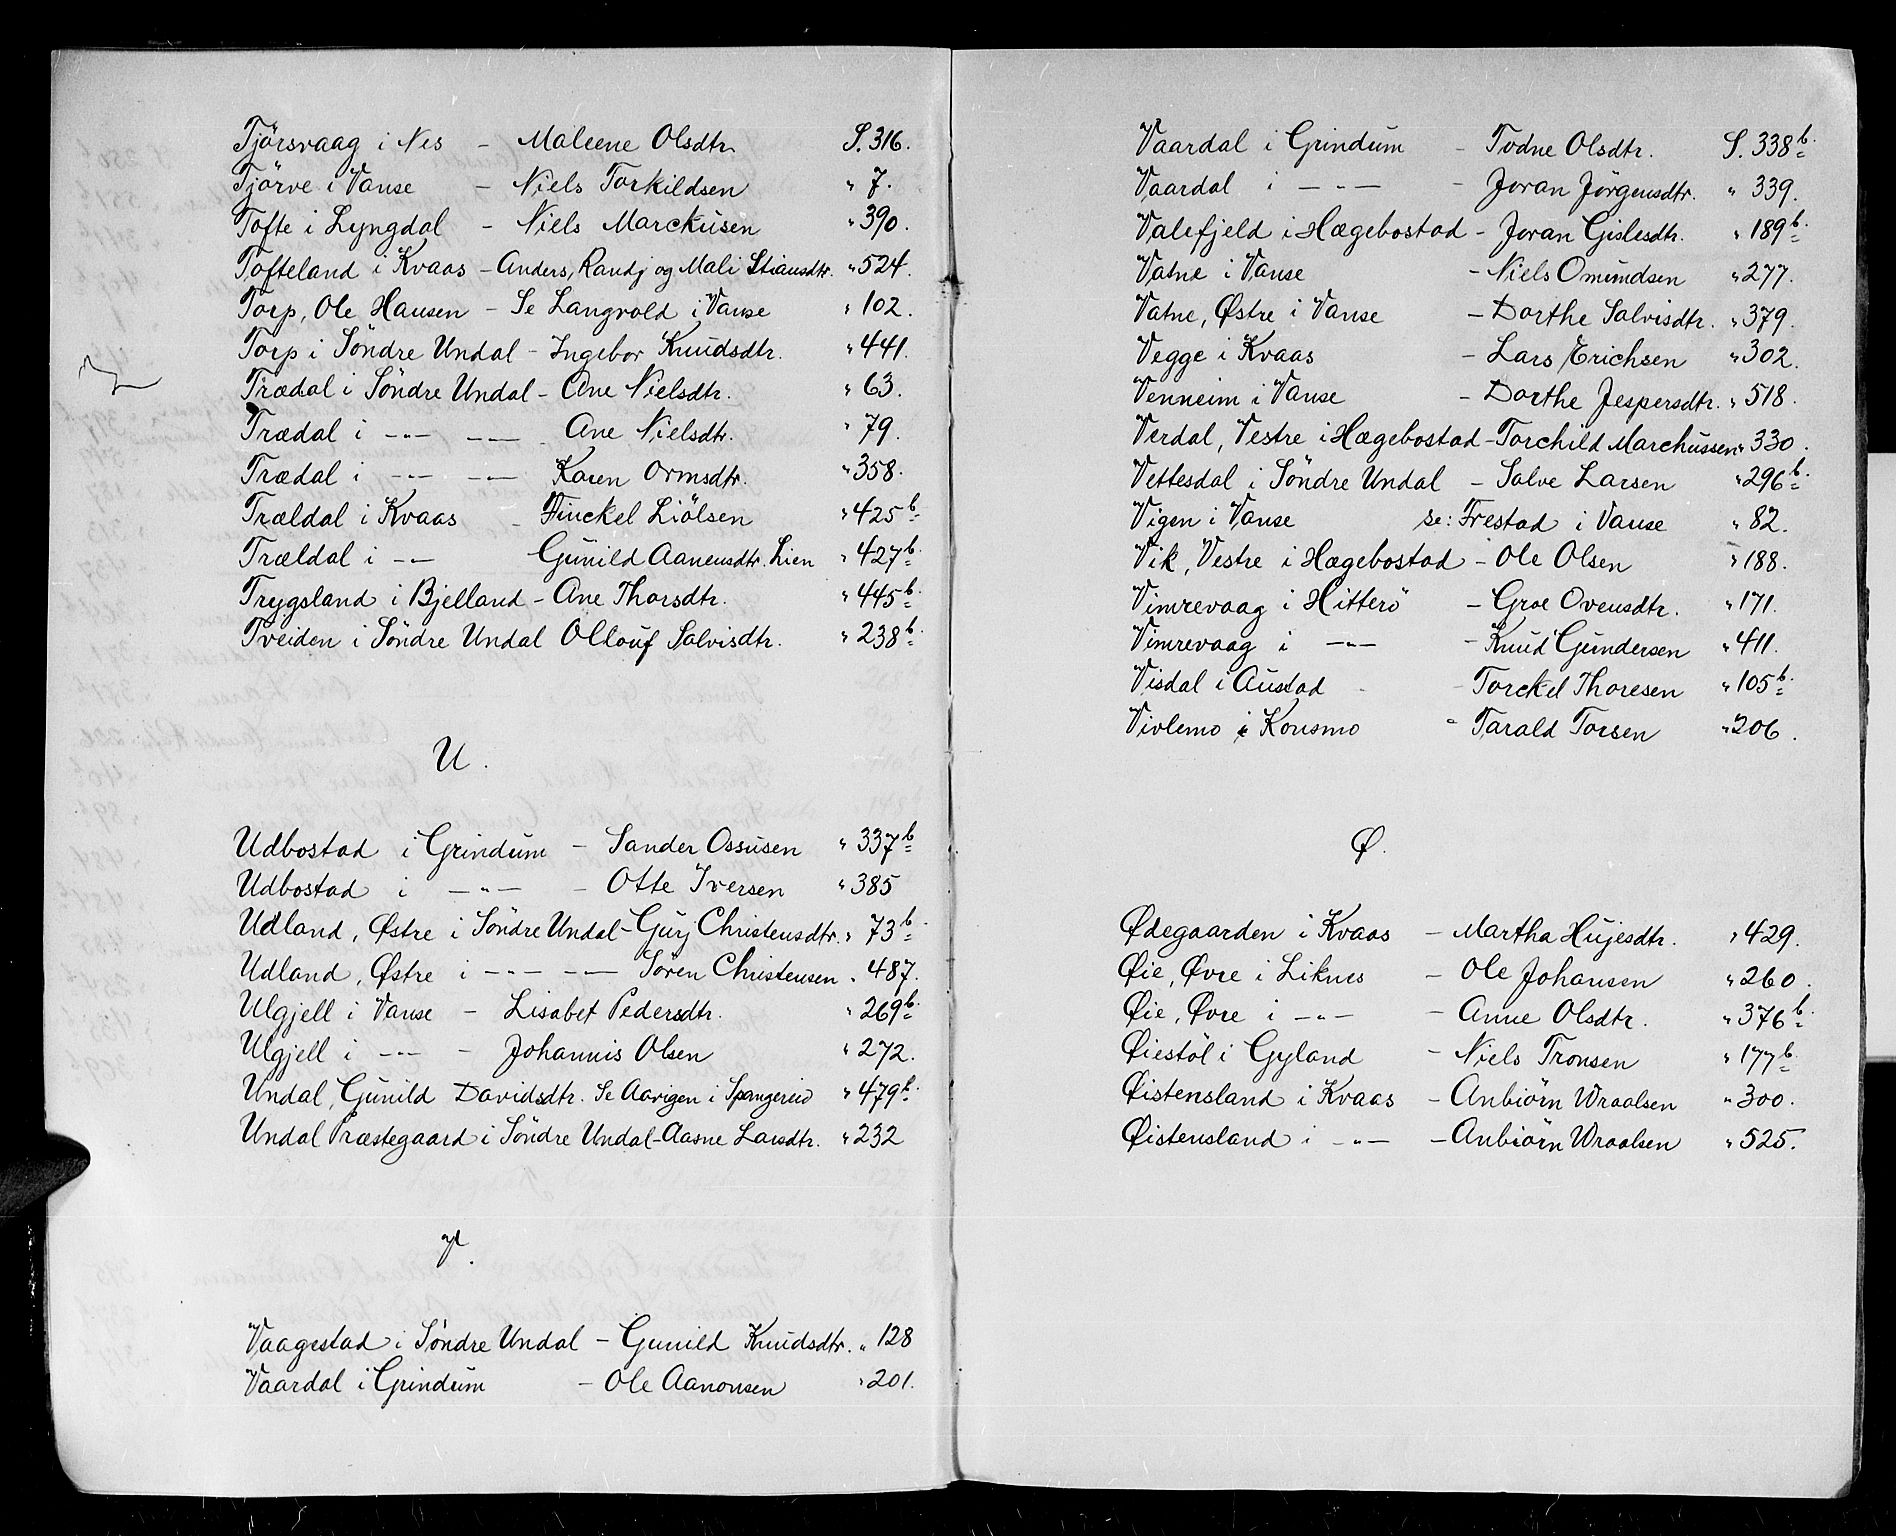 Tjörsvaag i Nes - Maleene Olsdtr. S. 316.
Tjörve i Vanse - Niels Torkildsen " 7.
Tofte i Lyngdal - Niels Marckusen " 390.
Tofteland i Kvaas - Anders, Randj og Mali Stiansdtr. " 524.
Torp, Ole Hansen - Se Langvold i Vanse " 102.
Torp i Söndre Undal - Ingebor Knudsdtr. " 441.
Trædal i Söndre Undal - Ane Nielsdtr. " 63.
Trædal i -"- -"- Ane Nielsdtr. " 79.
Trædal i -"- -"- Karen Ormsdtr. " 358.
Trældal i Kvaas - Finckel Liölsen " 425b.
Trældal i -"- Gunild Aanensdtr. Lien " 427b.
Trygsland i Bjelland - Ane Thorsdtr. " 445b.
Tveiden i Söndre Undal Ollouf Salvisdtr. " 238b.
U.
Udbostad i Grindum - Sander Ossusen " 337b.
Udbostad i -"- - Otte Iversen " 385
Udland, Østre i Söndre Undal - Gurj Christensdtr. " 73b.
Udland, Østre i -"- -"- Sören Christensen " 487.
Ulgjell i Vanse - Lisabet Pedersdtr. " 269b.
Ulgjell i -"- - Johannis Olsen " 272.
Undal, Gunild Davidsdtr. Se Aavigen i Spangereid " 479b.
Undal Præstegaard i Söndre Undal - Aasne Larsdtr. " 232
V.
Vaagestad i Söndre Undal - Gunild Knudsdtr. " 128
Vaardal i Grindum - Ole Aanonsen " 201.
Vaardal i Grindum - Todne Olsdtr. S. 338b.
Vaardal i -"- - Joran Jörgensdtr. " 339.
Valefjeld i Hægebostad - Joran Gislesdtr. " 189b.
Vatne i Vanse - Niels Omundsen " 277.
Vatne, Østre i Vanse - Dorthe Salvisdtr. " 379.
Vegge i Kvaas - Lars Erichsen " 302.
Venneim i Vanse - Dorthe Jespersdtr. " 518.
Verdal, Vestre i Hægebostad - Torchild Marchussen " 330.
Vettesdal i Söndre Undal - Salve Larsen " 296b.
Vigen i Vanse se: Frestad i Vanse " 82.
Vik, Vestre i Hægebostad - Ole Olsen " 188.
Vimrevaag i Hitterö - Groe Ovensdtr. " 171.
Vimrevaag i -"- - Knud Gundersen " 411.
Visdal i Austad - Torckel Thoresen " 105b.
Vivlemo i Konsmo - Tarald Torsen " 206.
Ø.
Ødegaarden i Kvaas - Martha Hujesdtr. " 429.
Øie, Øvre i Liknes - Ole Johansen " 260.
Øie, Øvre i -"- - Anne Olsdtr. " 376b.
Øiestöl i Gyland - Niels Tronsen " 177b.
Øistensland i Kvaas - Anbiörn Wraalsen " 300.
Øistensland i -"- - Anbiörn Wraalsen " 525.